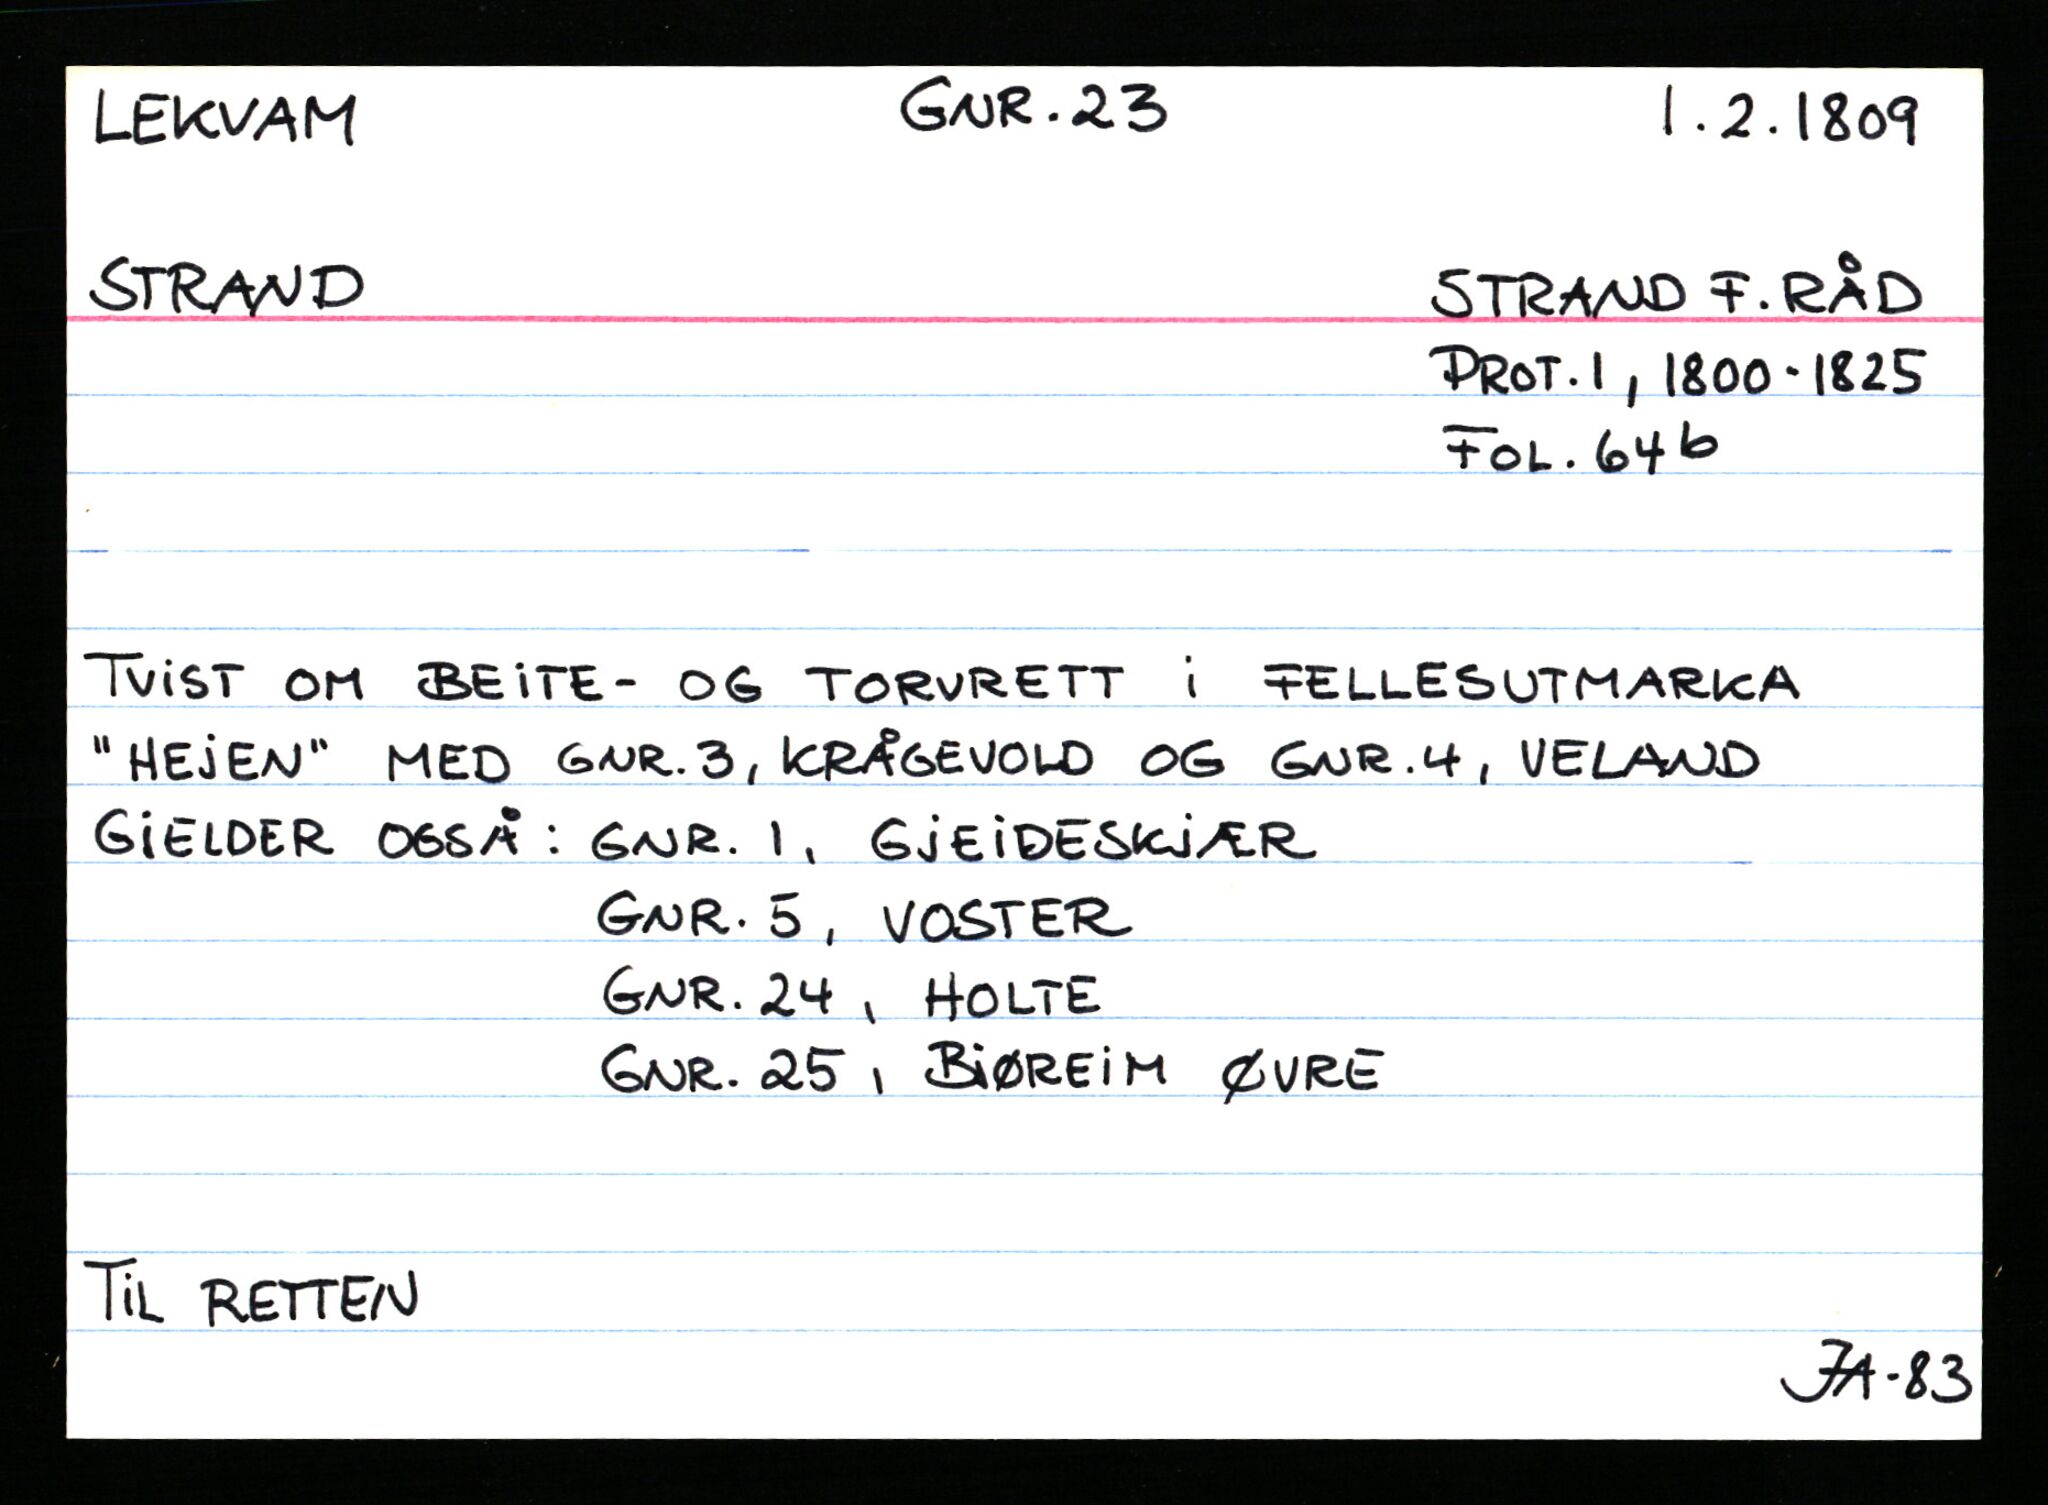 LEKVAM GNR. 23 1.2.1809
STRAND STRAND F. RÅD
PROT. 1, 1800-1825
FOL. 64b
TViST OM BEiTE- OG TORVRETT i FELLESUTMARKA
"HEJEN" MED GNR. 3, KRÅGEVOLD OG GNR. 4, VELAND
GiELDER OGSÅ: GNR. 1, GJEiDESKJÆR
GNR. 5, VOSTER
GNR. 24, HOLTE
GNR. 25, BiØREiM ØVRE
TiL RETTEN
JA-83